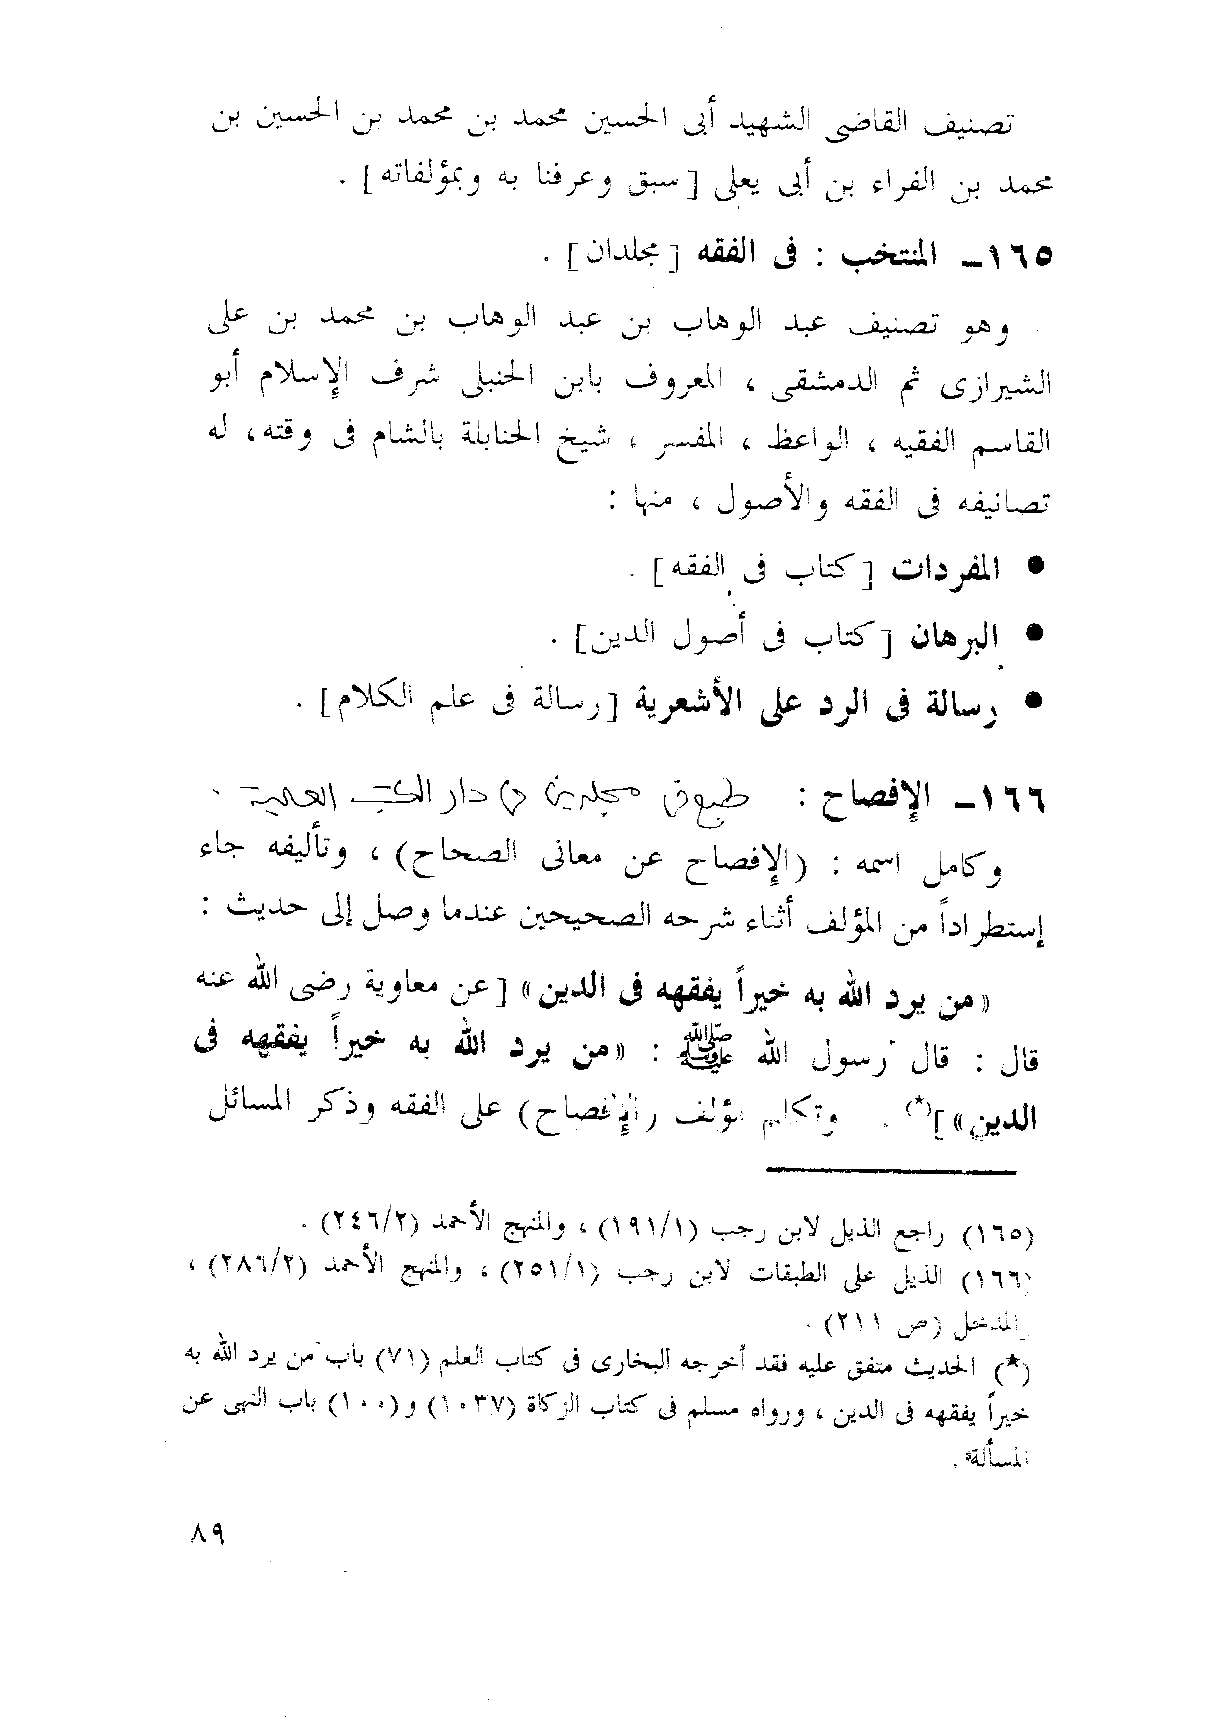 تصنيف القاضى الشهيد أبى الحسين محمد بن محمد بن الحسين بن
محمد بن الفراء بن أبى يعلى [سبق وعرفنا به وبمؤلفاته] .
١٦٥ــ المنتخب : فى الفقه [مجلدان] .
وهو تصنيف عبد الوهاب بن عبد الوهاب بن محمد بن على
الشيرازى ثم الدمشقى ، المعروف بابن الحنبلى شرف الإسلام أبو
القاسم الفقيه ، الواعظ ، المفسر ، شيخ الحنابلة بالشام فى وقته، له
تصانيفه فى الفقه والأصول ، منها :
● المفردات [كتاب فى الفقه] .
● البرهان [كتاب فى أصول الدين] .
● رسالة فى الرد على الأشعرية [رسالة فى علم الكلام] .
١٦٦ــ الإفصاح : طبع فى مجلدين دار الكتب العلمية .
وكامل اسمه : (الإفصاح عن معانى الصحاح) ، وتأليفه جاء
إستطراداً من المؤلف أثناء شرحه الصحيحين عندما وصل إلى حديث :
«من يرد الله به خيراً يفقهه فى الدين» [عن معاوية رضى الله عنه
قال : قال رسول الله ﷺ : «من يرد الله به خيراً يفقهه فى
الدين»](*) . وتكلم مؤلف (الإفصاح) على الفقه وذكر المسائل
(١٦٥) راجع الذيل لابن رجب (١٩١/١) ، والمنهج الأحمد (٢٤٦/٢) .
(١٦٦) الذيل على الطبقات لابن رجب (٢٥١/١) ، والمنهج الأحمد (٢٨٦/٢) ،
المدخل (ص ٢١١) .
(*) الحديث متفق عليه فقد أخرجه البخارى فى كتاب العلم (٧١) باب من يرد الله به
خيراً يفقهه فى الدين ، ورواه مسلم فى كتاب الزكاة (١٠٣٧) و(١٠٠) باب النهى عن
المسألة .
٨٩